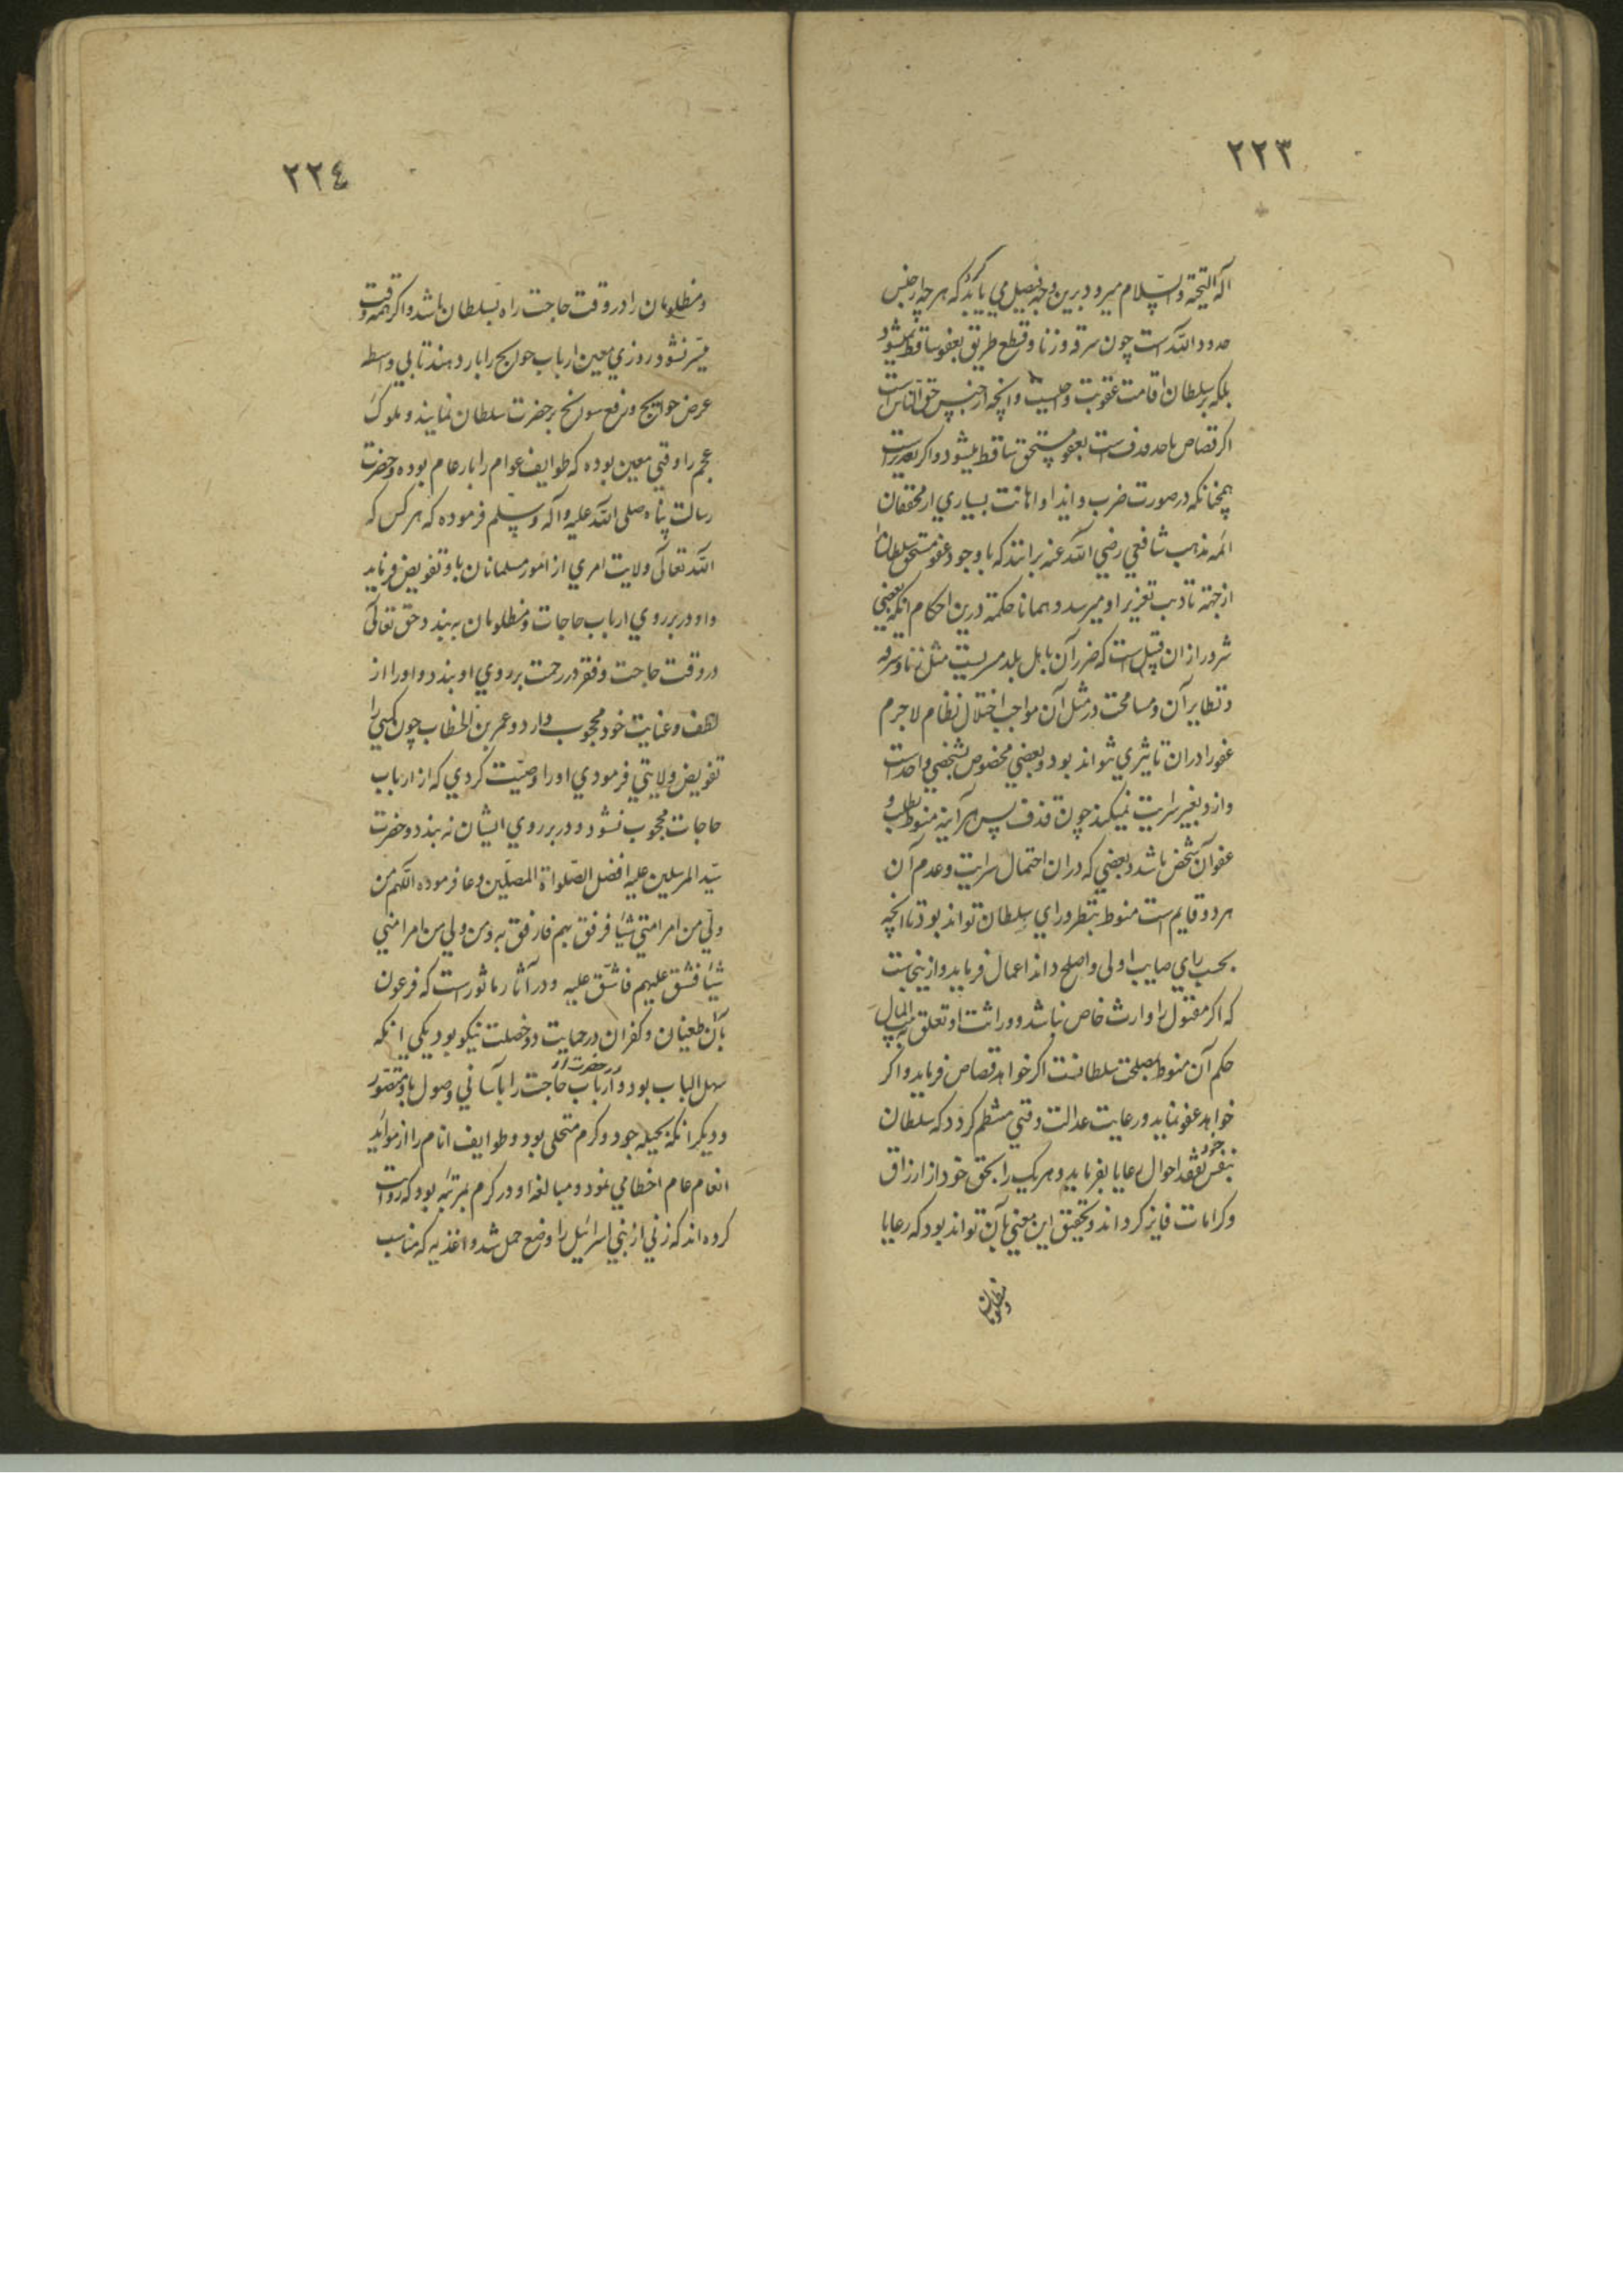 ٢٢٣
اله التحیة والسلام میرود برین وجه تفصیل می باید کرد که هرچه از جنس
حدود الله است چون سرقه و زنا و قطع طریق بعفو ساقط نمیشود
بلکه بر سلطان اقامت عقوبت واجبست و انچه از جنس حق الناس است
اکر قصاص یا حد قذف است بعفو مستحق ساقط میشود و اکر تعزیر است
همچنانکه در صورت ضرب و ایذا و اهانت بسیاري از محققان
ائمه مذهب شافعي رضي الله عنه برانند که با وجود عفو مستحق سلطان را
از جهة تادیب تعزیر او میرسد و همانا حکمة درین احکام انکه بعضي
شرور ازان قبیل است که ضرر آن باهل بلد مسریست مثل زنا و سرقه
و نظایر آن و مسامحت در مثل آن مواجب اختلال نظام لاجرم
عفو را دران تاثیري نتواند بود و بعضي مخصوص بشخصي واحد است
و ازو بغیر سرایت نمیکند چون قذف پس هرآینه منوط بطلب و
عفو آن شخص باشد و بعضي که دران احتمال سرایت و عدم آن
هر دو قایم است منوط بنظر و راي سلطان تواند بود تا انچه
بحسب راي صایب اولی و اصلح داند اعمال فرماید و ازینجاست
که اکر مقتول را وارث خاص نباشد و وراثت او تعلق به بیت المال
حکم آن منوط بمصلحت سلطانست اکر خواهد قصاص فرماید و اکر
خواهد عفو نماید و رعایت عدالت وقتي منتظم کردد که سلطان
بنفس خود تفقد احوال رعایا بفرماید و هر یک را بحق خود از ارزاق
و کرامات فایز کرداند و تحقیق این معني بآن تواند بود که رعایا
و مظلومان
٢٢٤
و مظلومان را در وقت حاجت راه بسلطان باشد و اکر همه وقت
میّسر نشود روزي معین ارباب حوایج را بار دهند تا بي واسطه
عرض حوایج و رفع سوانح بر حضرت سلطان نمایند و ملوک
عجم را وقتي معین بوده که طوایف عوام را بار عام بوده و حضرت
رسالت پناه صلی الله علیه وآله وسلّم فرموده که هر کس که
الله تعالی ولایت امري از امور مسلمانان باو تفویض فرماید
و او در بر روي ارباب حاجات و مظلومان به بندد حق تعالی
در وقت حاجت و فقر در رحمت بر روي او بندد و او را از
لطف و عنایت خود محجوب دارد و عمر بن الخطاب چون کسي را
تفویض ولایتي فرمودي او را وصیّت کردي که از ارباب
حاجات محجوب نشود و در بر روي ایشان نه بندد و حضرت
سیّد المرسلین علیه افضل الصّلواة المصلّین دعا فرموده اللّهم من
ولّي من امر امتي شیئًا فرفق بهم فارفق به و من ولي من امر امتي
شیئًا فشقّ علیهم فاشقّ علیه و در آثار ماثور است که فرعون
بآن طغیان و کفران در حمایت دو خصلت نیکو بود یکي انکه
سهل الباب بود و ارباب حاجت را بآساني وصول باو در حضرت او متصوّر
و دیکر انکه بحیله جود و کرم متحلی بود و طوایف انام را از مواید
انعام عام احظا مي نمود و مبالغه او در کرم بمرتبه بود که روایت
کرده اند که زني از بني اسرائیل را وضع حمل شد و اغذیه که مناسب